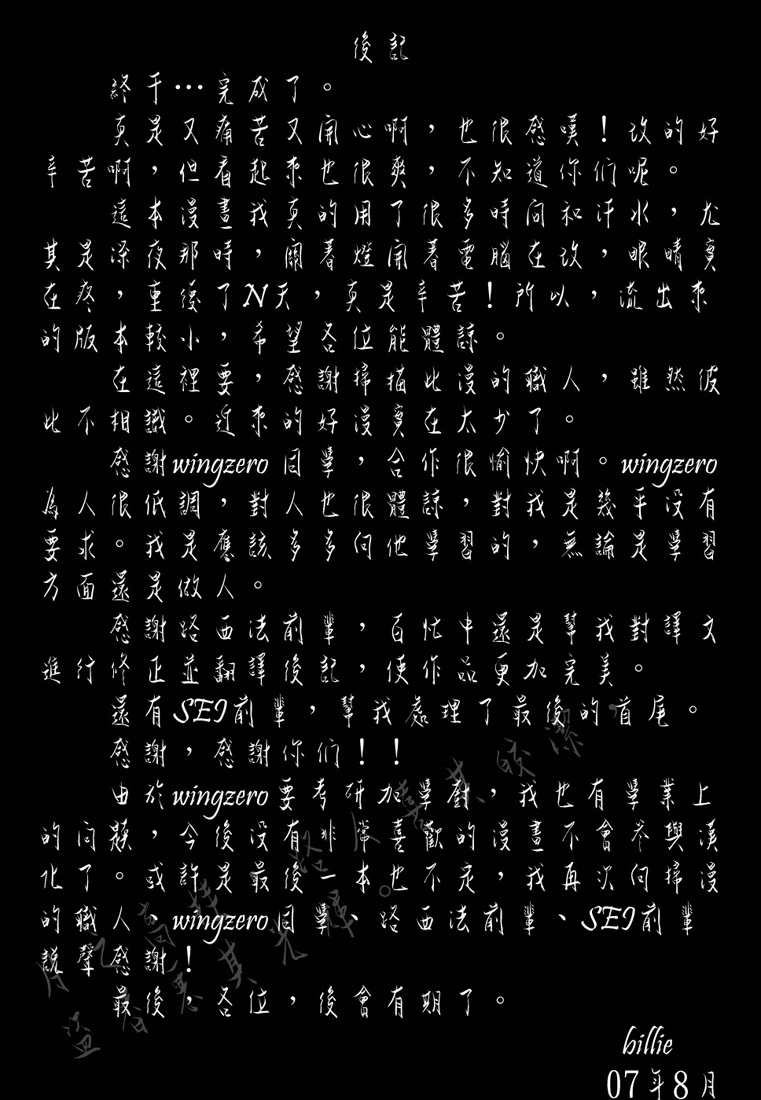 後記
終于…完成了。
真是又痛苦又開心啊，也很感嘆！改的好
辛苦啊，但看起來也很爽，不知道你们呢。
這本漫畫我真的用了很多時间和汗水，尤
其是深夜那時，關着燈開着電腦在改，眼睛實
在疼，重復了N天，真是辛苦！所以，流出來
的版本較小，希望各位能體諒。
在這裡要，感謝掃描此漫的職人，雖然彼
此不相識。近來的好漫實在太少了。
感謝wingzero同學，合作很愉快啊。wingzero
為人很低調，對人也很體諒，對我是幾乎没有
要求。我是應該多多向他學習的，無論是學習
方面還是做人。
感謝路西法前輩，百忙中還是幫我對譯文
進行修正並翻譯後記，使作品更加完美。
還有SEI前輩，幫我處理了最後的首尾。
感謝，感謝你们！！
由於wingzero要考研加學廚，我也有學業上
的问題，今後没有非常喜歡的漫畫不會参與漢
化了。或許是最後一本也不定，我再次向掃漫
的職人、wingzero同學、路西法前輩、SEI前輩
説聲感謝！
最後，各位，後會有期了。
billie
07年8月